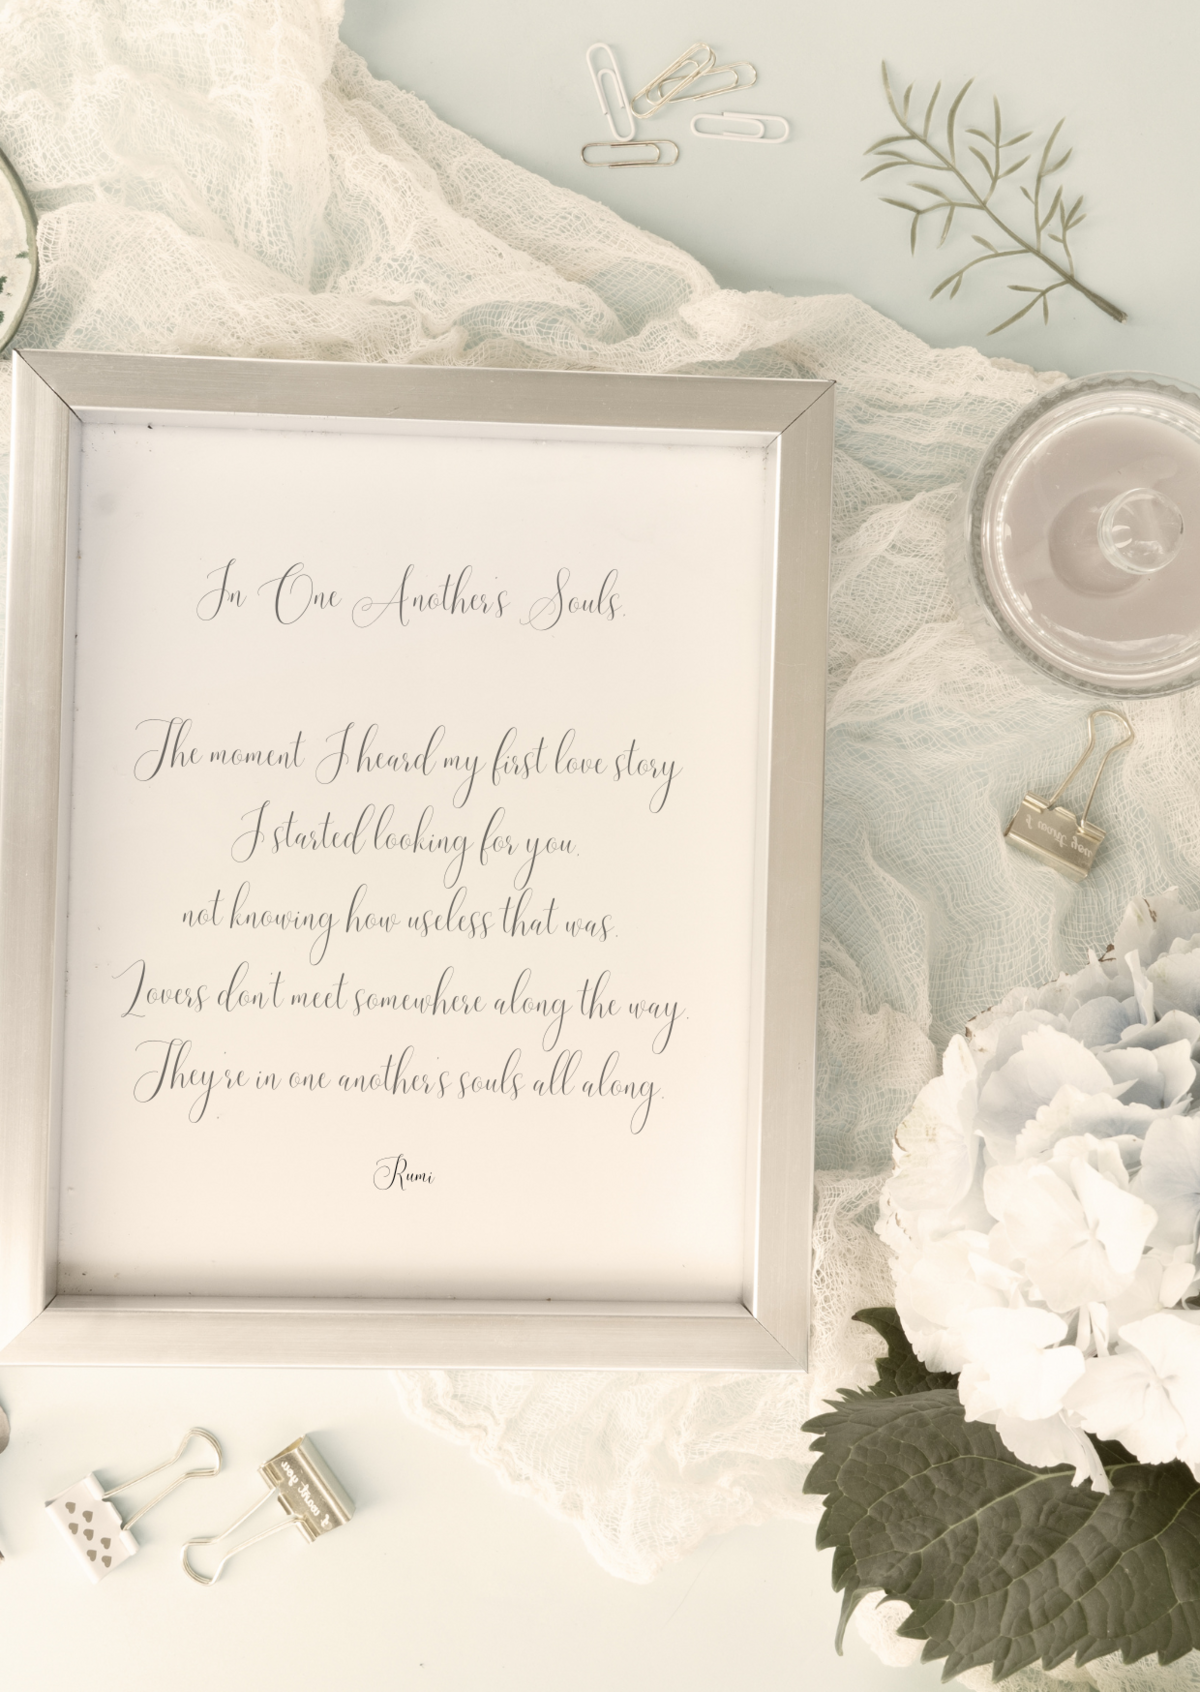 In One Another's Souls.
The moment I heard my first love story
I started looking for you.
not knowing how useless that was.
Lovers don't meet somewhere along the way.
They're in one another's souls all along.
Rumi
I want you
I want you